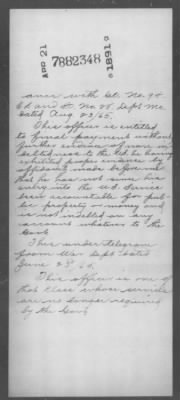 APR 21
7882348
1891
ance with G.O. No. 94
C.S. and G.O. No. 28 Dept Mo
dated Aug 23/65.
This officer is entitled
to final payment without
further evidence of non in
debtedness to the U.S. he having
exhibited proper evidence by
affidavit made before me
that he has not since his
entry into the U.S. Service
been accountable for pub
lic property or money and
is not indebted on any
account whatever to the
Govt
This under telegram
from War Dept dated
June 23" 65.
This officer is one of
that class whose services
are no longer required
by the Govt